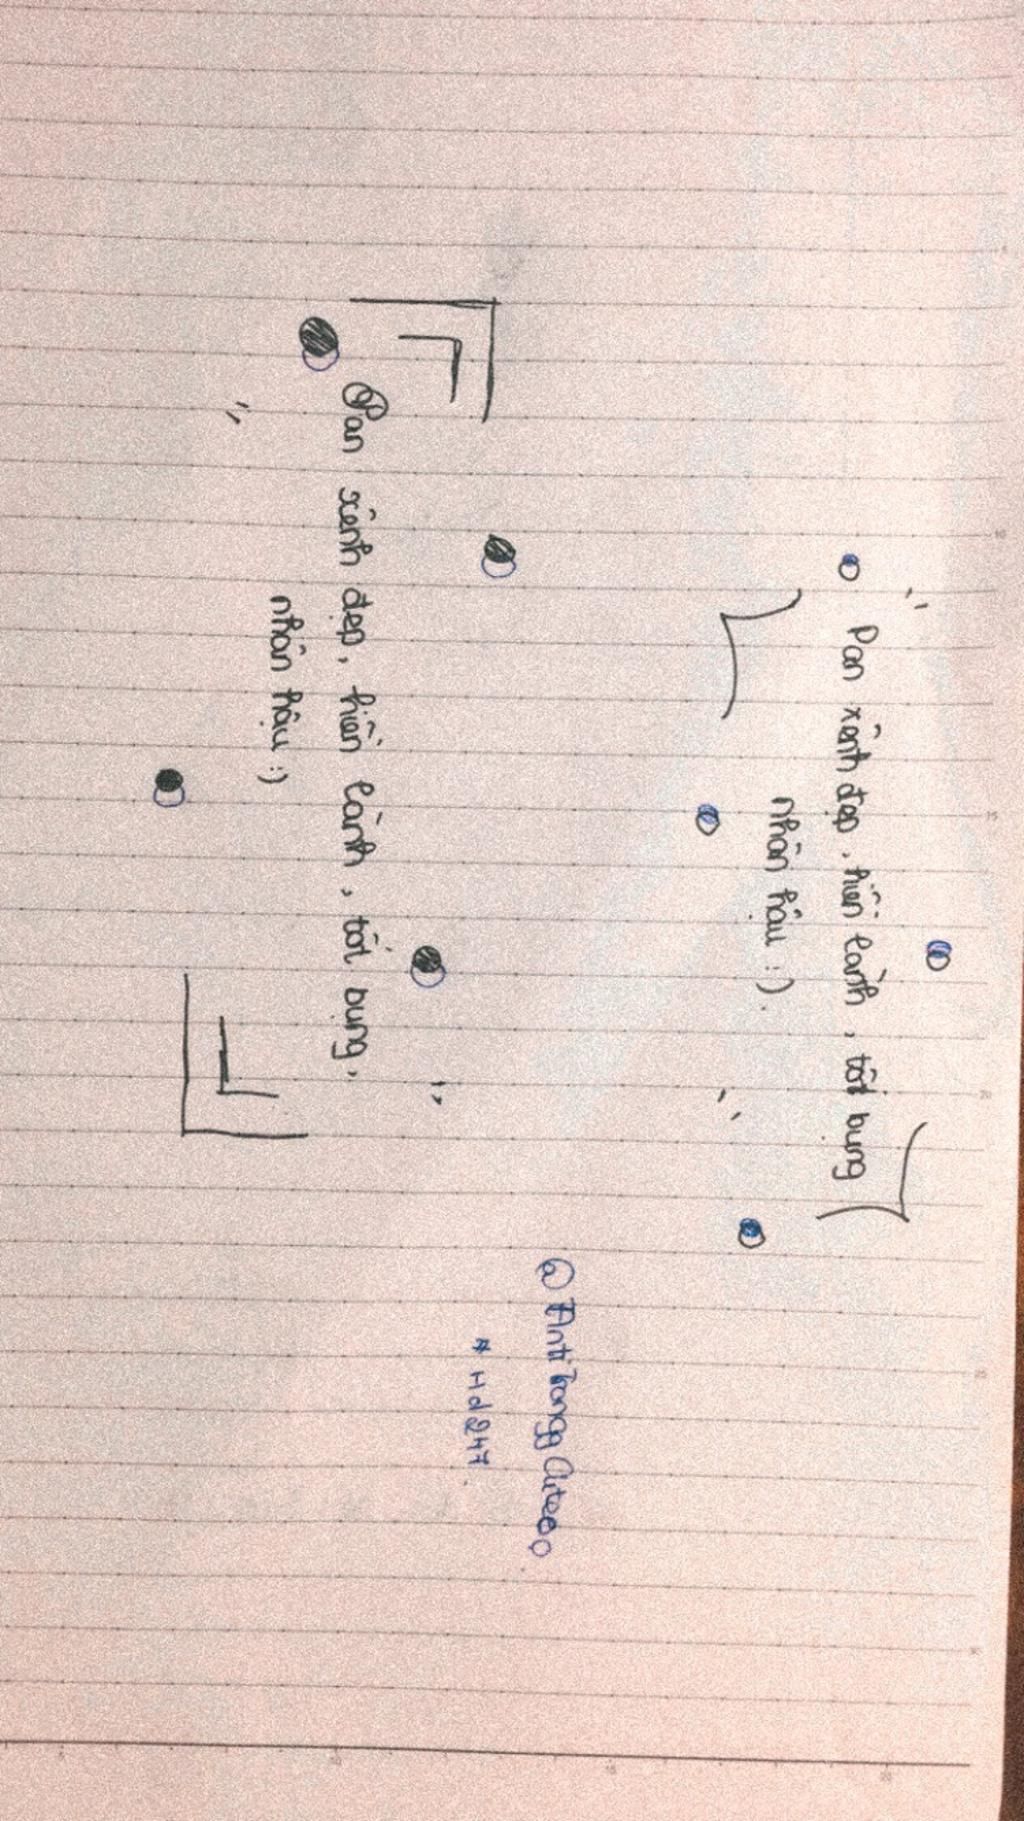 Pan xênh đẹp, hiền lành, tốt bụng
nhân hậu :).
Pan xênh đẹp, hiền lành, tốt bụng,
nhân hậu :)
@Anti Trangg Cuteeo
# Hd247.